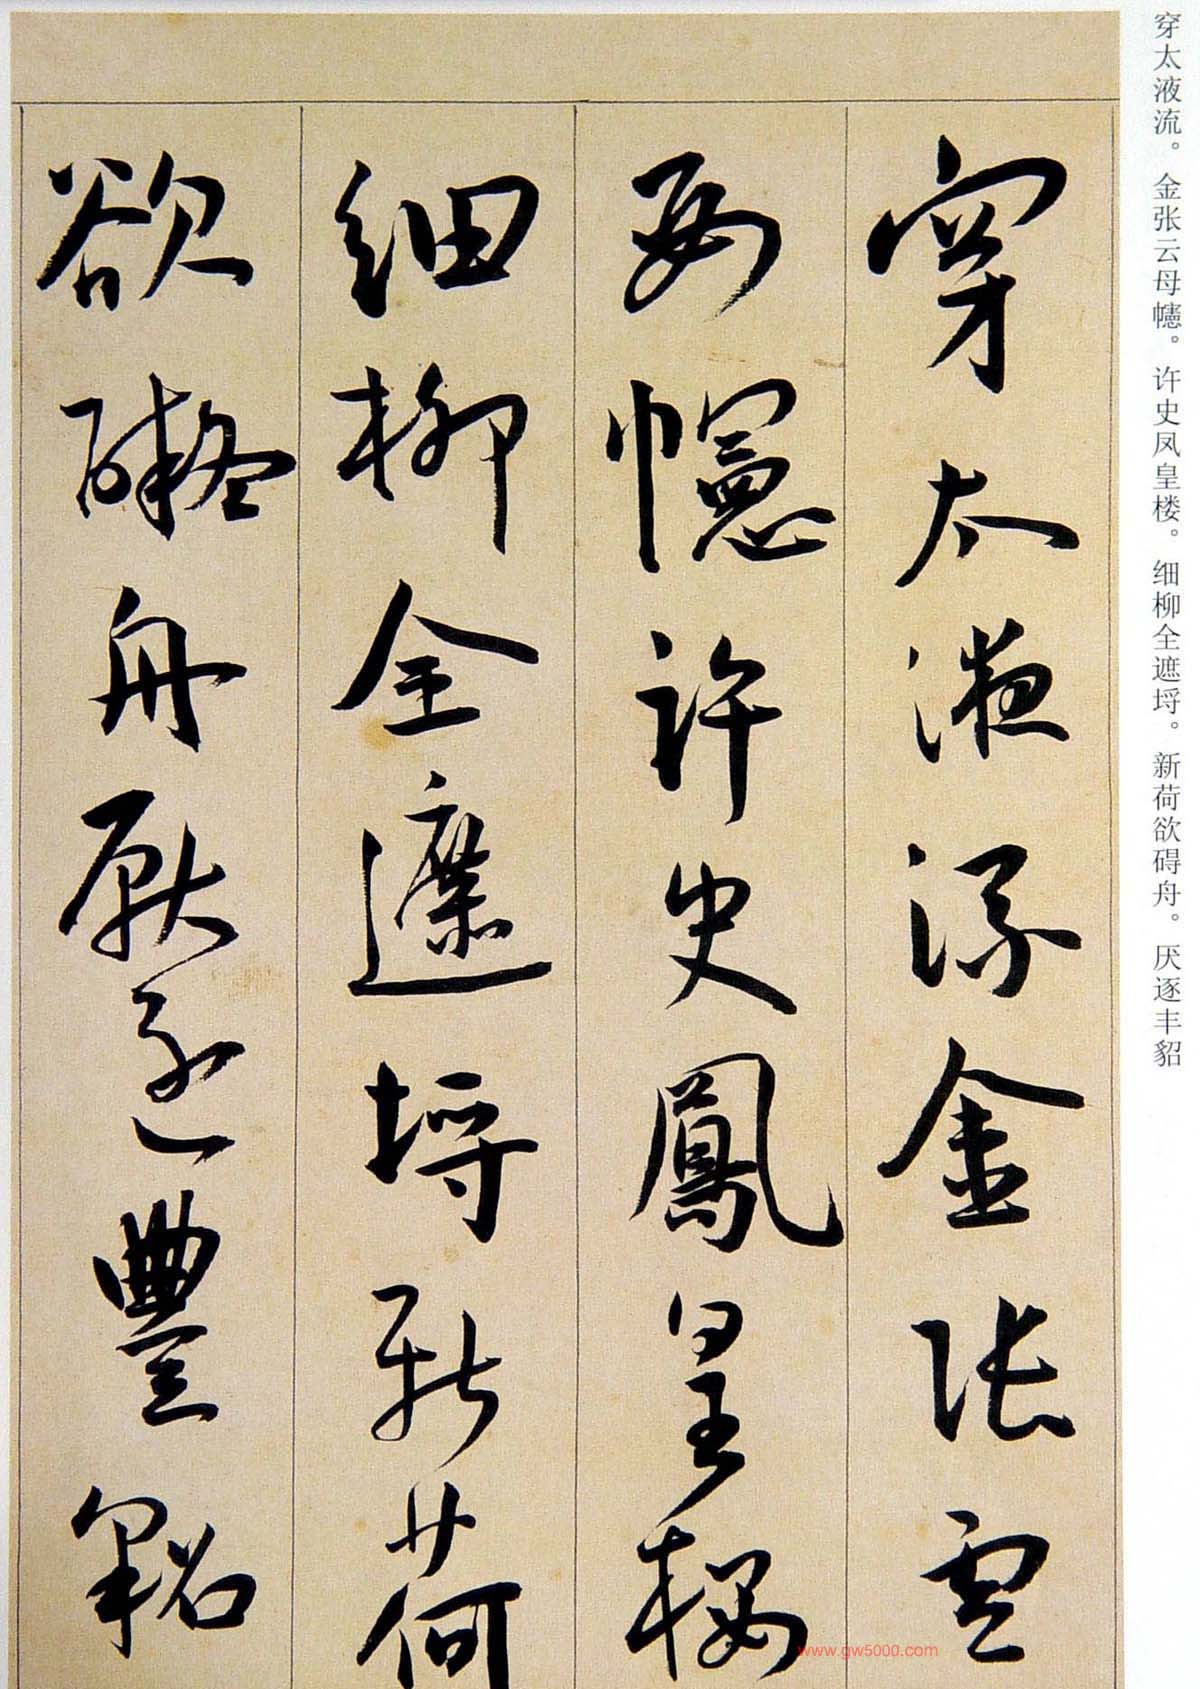 穿太液流。金张云母幰。许史凤皇楼。细柳全遮埒。新荷欲碍舟。厌逐丰貂
穿太液流金張雲
母幰許史鳳皇樓
細柳全遮埒新荷
欲礙舟厭逐豐貂
www.gw5000.com